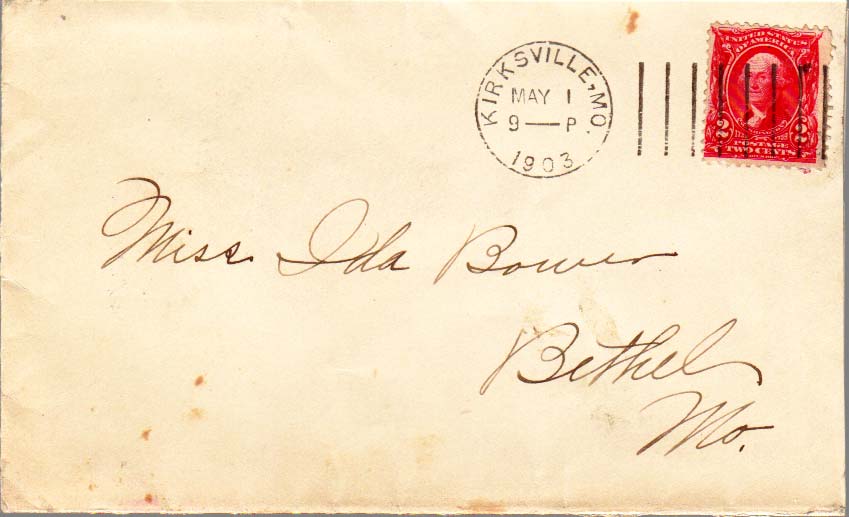 KIRKSVILLE, MO.
MAY 1
9 — P
1903
UNITED STATES
OF AMERICA
2 2
POSTAGE
TWO CENTS
Miss Ida Bower
Bethel
Mo.